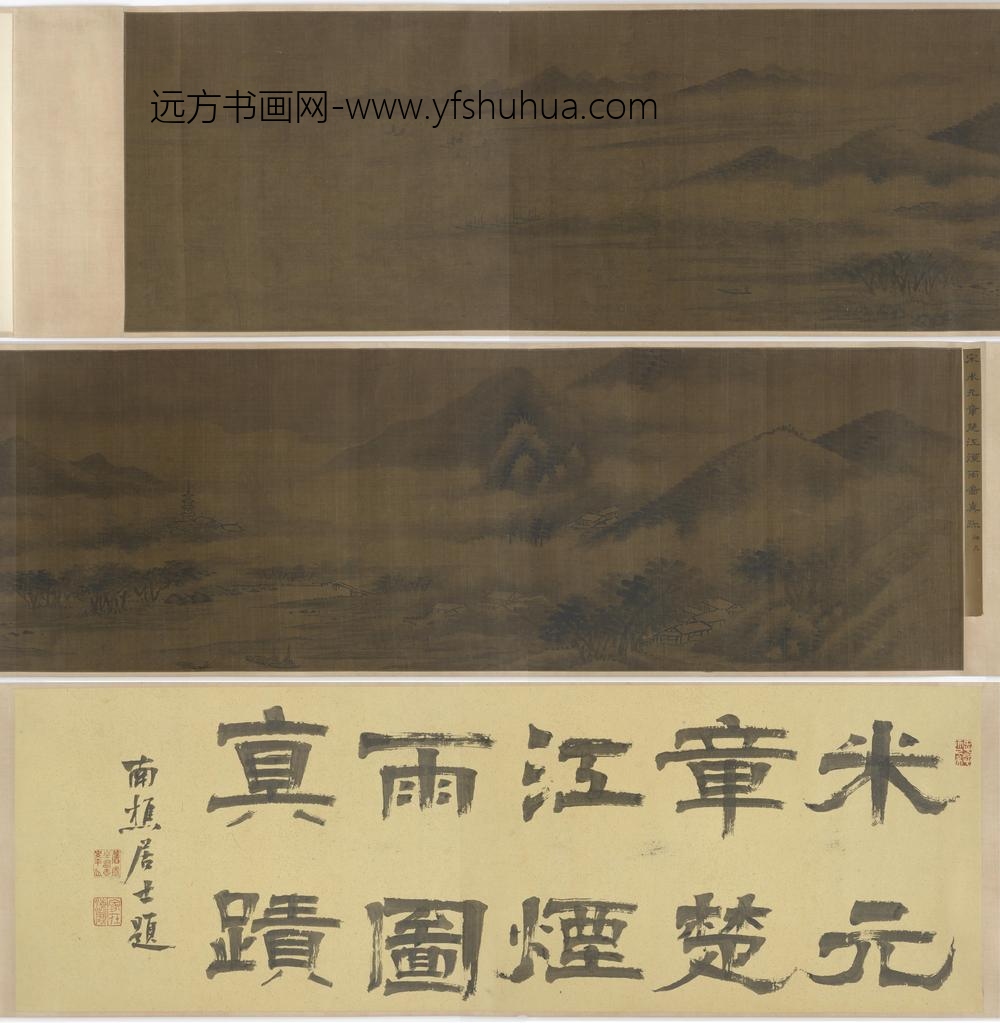 远方书画网-www.yfshuhua.com
宋米元章楚江烟雨图真迹
米元
章楚
江煙
雨圖
真蹟
南樵居士題